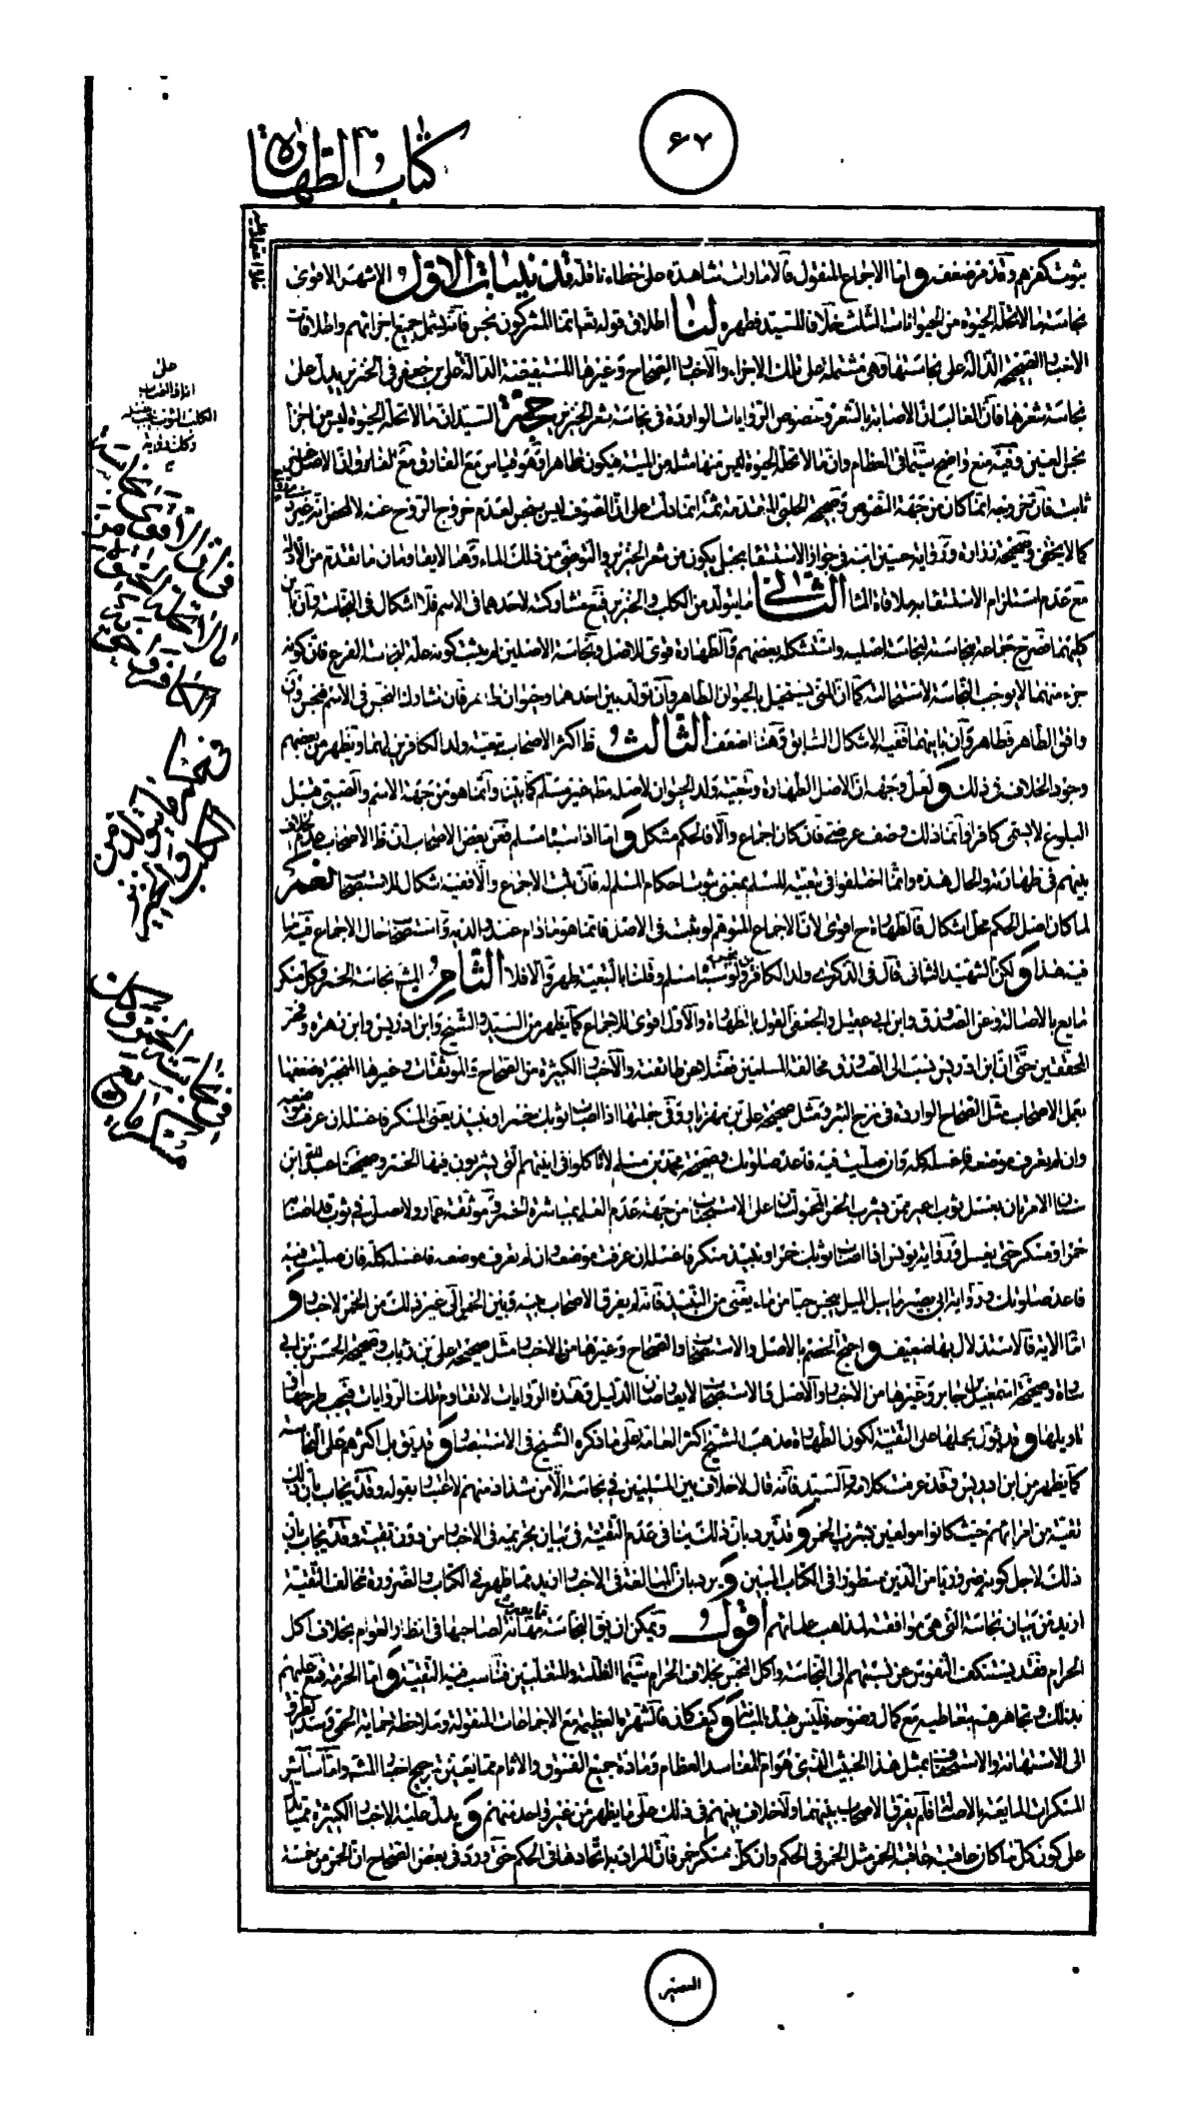 ۶۷
كتاب الطهارة
بثبوت كفرهم وقد مر ضعفه واما الاجماع المنقول فالامارات شاهدة على خطاء ناقله تذنيبات الاول الاشهر الاقوى
نجاسة ما لا تحله الحيوة من الحيوانات الثلث خلافا للسيد فطهره لنا اطلاق قوله تعم انما المشركون نجس فانه يشمل جميع اجزائهم واطلاقات
الاخبار الصحيحة الدالة على نجاستها وهى مشتملة على تلك الاجزاء والاخبار الصحاح وغيرها المستفيضة الدالة على بن جعفر في الخنزير يدل على
نجاسة شعرها فان الغالب ان الاصابة بالشعر وخصوص الروايات الواردة في نجاسة شعر الخنزير حجة السيد ان ما لا تحله الحيوة ليس من اجزا
نجس العين وفيه منع واضح سيما في العظام وان ما لا تحله الحيوة ليس منها مثله من الميتة فيكون طاهرا وهو قياس مع الفارق مع الفارق وان الاصل
ثابت فان خروجه انما كان من جهة النصوص وصحيحة الحلبي المتقدمة ثمة انما دلت على ان الصوف ليس بنجس لعدم خروج الروح عنه لا لمحض انه غير ذى
كما لا يخفى وصحيحة زرارة ورواية حسين ابنه في جواز الاستقاء بحبل يكون من شعر الخنزير والتوضى من ذلك الماء وهما لا يقاومان ما تقدم من الادلة
مع عدم استلزام الاستقاء به ملاقاة الماء الثاني ما يتولد من الكلب والخنزير فمع مشاركته لاحدهما في الاسم فلا اشكال في النجاسة وان باين
كليهما فصرح جماعة بنجاسته لنجاسة اصليه واستشكله بعضهم والطهارة قوى للاصل ونجاسة الاصلين لم يثبت كونه علة لنجاسة الفرع فان كونه
جزء منهما لا يوجب النجاسة لاستحالته كما ان المني يستحيل بالحيوان الطاهر وان تولد بين احدهما وحيوان طاهر فان شارك النجس في الاسم فنجس وان
وافق الطاهر فطاهر وان باينهما ففيه الاشكال السابق وهنا اضعف الثالث ظ اكثر الاصحاب تبعية ولد الكافرين لهما ويظهر من بعضهم
وجود الخلاف في ذلك ولعل وجهه ان الاصل الطهارة وتبعية ولد الحيوان لاصله مط غير مسلم كما بينا وانما هو من جهة الاسم والصبي قبل
البلوغ لا يسمى كافرا وانما ذلك وصف عرضي فان كان اجماع والا فالحكم مشكل واما اذا سباه مسلم فعن بعض الاصحاب ان ظ الاصحاب عدم الخلاف
بينهم في طهارته والحال هذه وانما اختلفوا في تبعيته للمسلم بمعنى ثبوت احكام المسلم له فان ثبت الاجماع والا ففيه اشكال للاستصحاب نعم
لما كان اصل الحكم محل اشكال فالطهارة ح اقوى لان الاجماع المتوهم لو ثبت في الاصل فانما هو ما دام عند والديه واستصحاب حال الاجماع فيه ما
فيه هذا ولكن الشهيد الثاني قال في الذكرى ولد الكافر نجس ولو سباه مسلم وقلنا بالتبعية طهر والا فلا الثامن المش نجاسة الخمر وكل منكر
مايع بالاصالة وعن الصدوق وابن ابي عقيل والجعفي القول بالطهارة والاول اقوى للاجماع كما يظهر من السيد والشيخ وابن ادريس وابن زهرة وفخر
المحققين حتى ان ابن ادريس نسب الى الصدوق مخالفة المسلمين فضلا عن طائفته والاخبار الكثيرة من الصحاح والموثقات وغيرها المنجبرة ضعفها
بعمل الاصحاب مثل الصحاح الواردة في نزح البئر ومثل صحيحة علي بن مهزيار وفي جملتها اذا اصاب ثوبك خمر او نبيذ يعني المسكر فاغسله ان عرفت موضعه
وان لم يعرف موضعه فاغسله كله وان صليت فيه فاعد صلوتك وصحيحة محمد بن مسلم لا تاكلوا في انيتهم التي يشربون فيها الخمر وصحيحتا عبد الله بن
سنان الامر بان يغسل ثوب اعير ممن يشرب الخمر المحمولتان على الاستحباب من جهة عدم العلم بمباشرة الخمر وموثقة عمار ولا تصل في ثوب قد اصابه
خمر او مسكر حتى يغسل ورواية يونس اذا اصاب ثوبك خمر او نبيذ منكر فاغسله ان عرفت موضعه وان لم تعرف موضعه فاغسله كله فان صليت فيه
فاعد صلوتك ورواية ابي بصير ما يبل الميل ينجس حبا من ماء يعني من النبيذ فانه لم يفرق الاصحاب بينه وبين الخمر الى غير ذلك من الاخبار و
اما الاية فالاستدلال بها ضعيف واحتج الخصم بالاصل والاستصحاب والصحاح وغيرها من الاخبار مثل صحيحة علي بن رئاب وصحيحة الحسن بن ابي
سارة وصحيحة اسمعيل بن جابر وغيرها من الاخبار والاصل والاستصحاب لا يعارضان الدليل وهذه الروايات لا تقاوم تلك الروايات فيجب طرحها او
تاويلها وقد يؤل بحملها على التقية لكون الطهارة مذهب الشيخ اكثر العامة على ما ذكره الشيخ في الاستبصار وقد يق بل اكثرهم على النجاسة
كما يظهر من ابن ادريس وقد عرفت كلامه والسيد فانه قال لا خلاف بين المسلمين في نجاسته الا من شذاذ منهم لا اعتبار بقوله وقد يجاب بان ذلك
تقية من امرائهم حيث كانوا مولعين بشرب الخمر وقد يرد بان ذلك ينافي عدم التقية في بيان تحريمه في الاخبار من دون تقية وقد يجاب بان
ذلك لاجل كونه ضروريا من الدين مسطورا في الكتاب المبين ويرد بان المبالغة في الاخبار ازيد مما ظهر في الكتاب والضرورة مخالف التقية
ازيد من بيان نجاسته التي هي موافقة لمذاهب علمائهم اقول ويمكن ان يق النجاسة مهانة لصاحبها في انظار العوام بخلاف اكل
الحرام فقد يستنكف النفوس عن نسبتهم الى النجاسة واكل النجس بخلاف الحرام سيما الظلمة والمتغلبين فناسب فيه التقية واما الحرمة فمع علمهم
بذلك وتجاهرهم بتعاطيه مع كمال وضوحه فليس هذه المثابة وكيف كان فالشهرة العظيمة مع الاجماعات المنقولة وملاحظة حماية الحمى وسد الطرق
الى الاستهانة والاستخفاف بمثل هذا الخبيث الذي هو ام المفاسد العظام ومادة جميع الفسوق والاثام مما يعين ترجيح اخبار المش واما ساير
المسكرات المايعة بالاصالة فلم يفرق الاصحاب بينهما ولا خلاف بينهم في ذلك على ما يظهر من غير واحد منهم ويدل عليه الاخبار الكثيرة مما دل
على كون كل ما كان عاقبته عاقبة الخمر مثل الخمر في الحكم وان كل مسكر خمر فان المراد به اتحادها في الحكم حتى ورد في بعض الصحاح ان الخمر من خمسة
العصير
على
اذا اصاب
الكلب الثوب
فى ان الاقوى نجاسة
ما لا تحله الحيوة من
الكافر واخويه
فى حكم ما يتولد من
الكلب والخنزير
فى نجاسة الخمر وكل
مسكر مايع